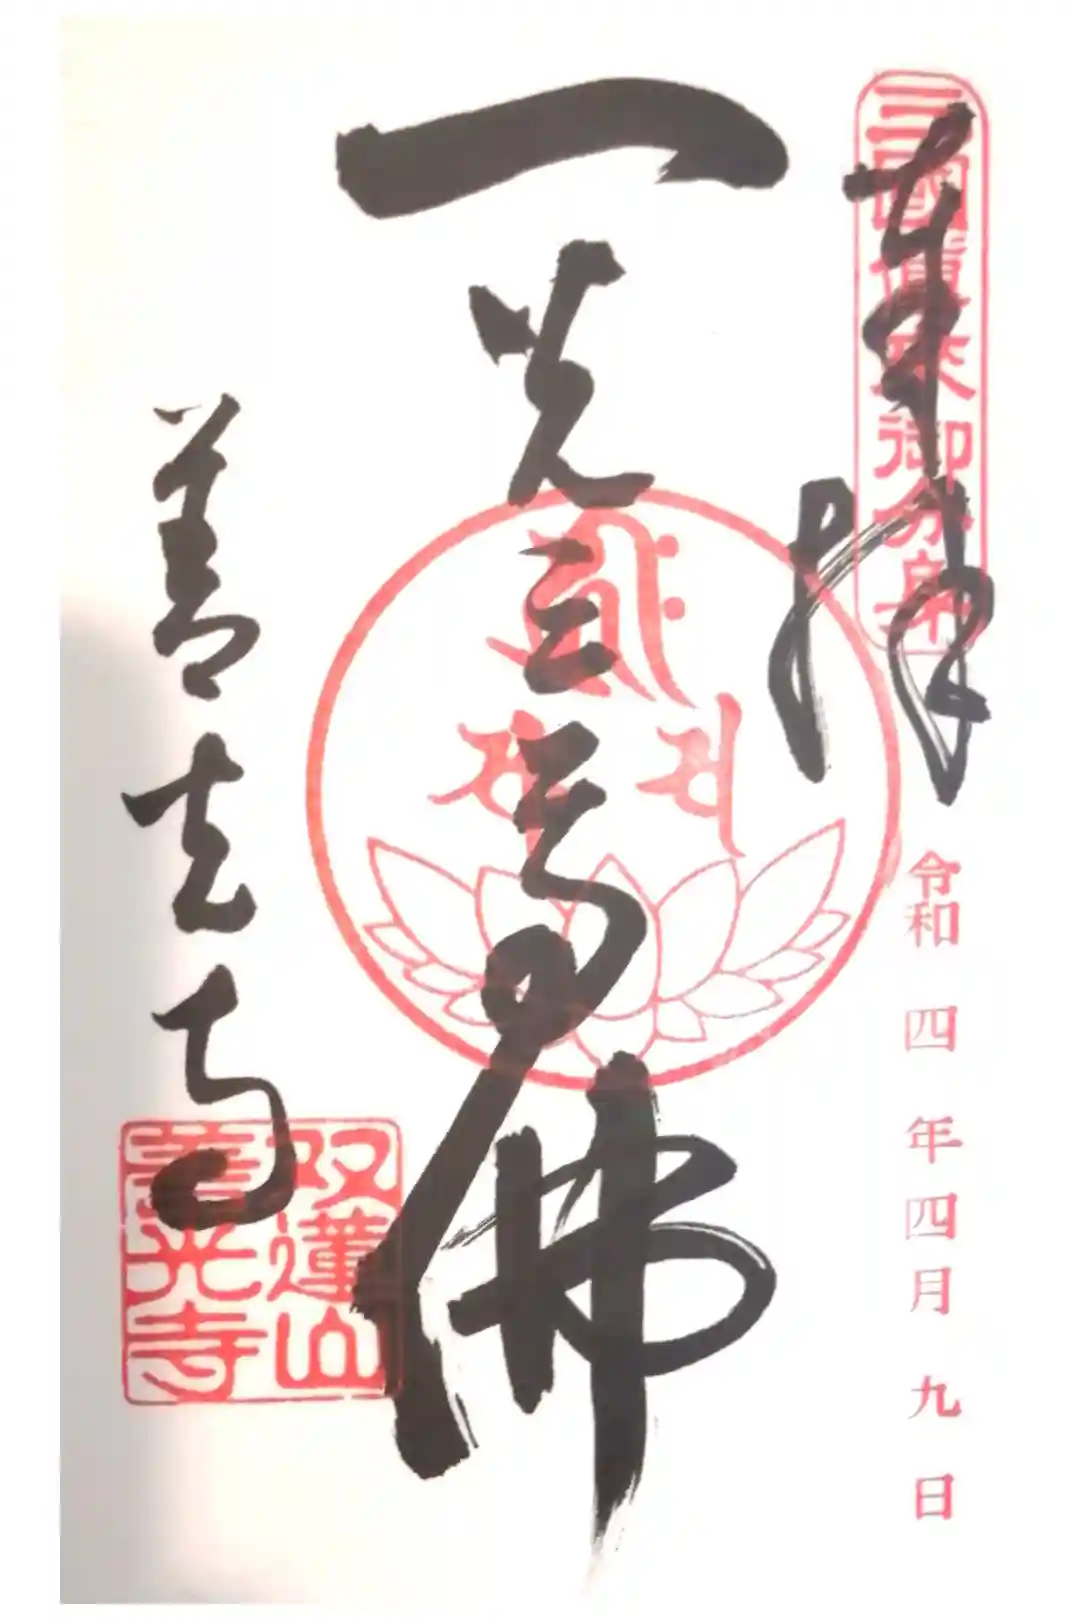 奉拝
三國傳來御分身
令和四年四月九日
一光三尊佛
善光寺
双蓮山
善光寺